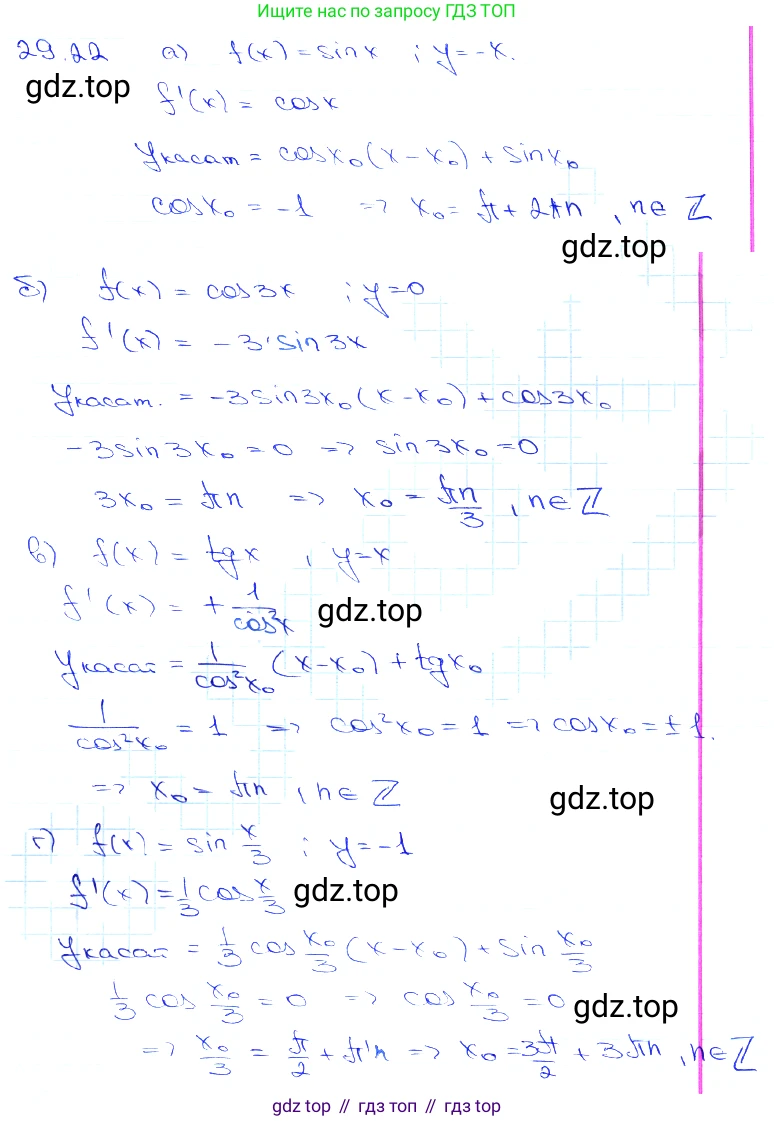 Ищите нас по запросу ГДЗ ТОП
29.22 а) f(x) = sinx ; y=-x.
gdz.top
f'(x) = cosx
Yкасат = cosx₀(x-x₀) + sinx₀
cosx₀ = -1 => x₀ = π + 2πn , n∈ℤ
gdz.top
б) f(x) = cos3x ; y=0
f'(x) = -3·sin3x
Yкасат. = -3sin3x₀(x-x₀) + cos3x₀
-3sin3x₀ = 0 => sin3x₀ = 0
3x₀ = πn => x₀ = πn/3 , n∈ℤ
в) f(x) = tgx , y=x
f'(x) = + 1/cos²x
gdz.top
Yкасат = 1/cos²x₀ (x-x₀) + tgx₀
1/cos²x₀ = 1 => cos²x₀ = 1 => cosx₀ = ±1.
=> x₀ = πn , n∈ℤ
gdz.top
г) f(x) = sin x/3 ; y=-1
f'(x) = 1/3 cos x/3
gdz.top
Yкасат = 1/3 cos x₀/3 (x-x₀) + sin x₀/3
1/3 cos x₀/3 = 0 => cos x₀/3 = 0
gdz.top
=> x₀/3 = π/2 + πn => x₀ = 3π/2 + 3πn , n∈ℤ
gdz top // гдз топ // гдз top